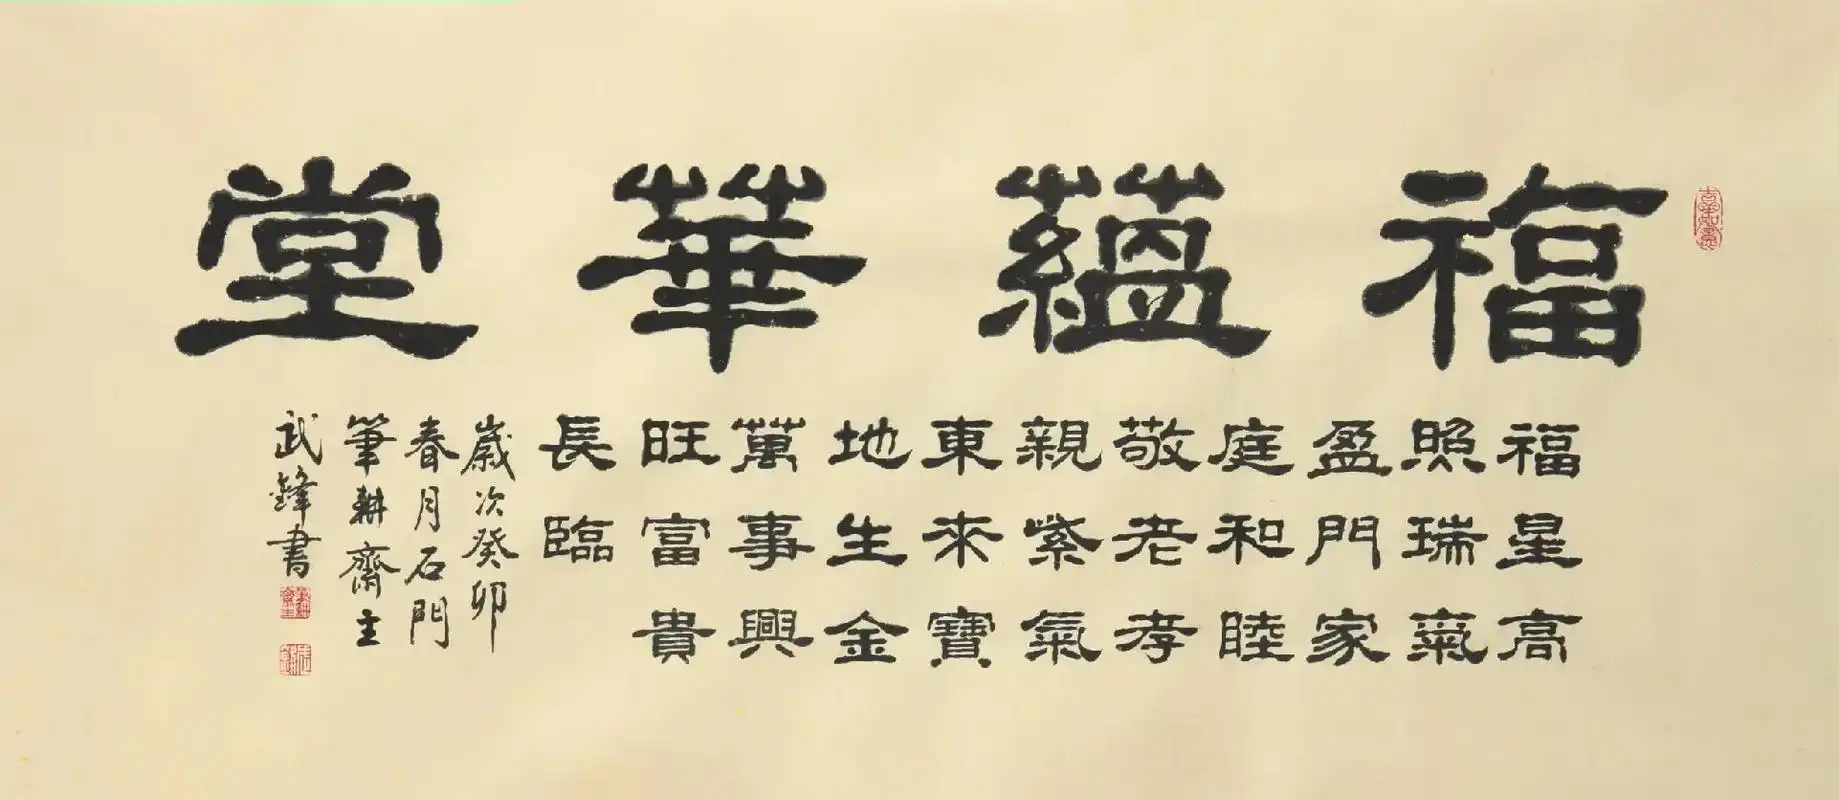 福蘊華堂
福星高
照瑞氣
盈門家
庭和睦
敬老孝
親紫氣
東來寶
地生金
萬事興
旺富貴
長臨
歲次癸卯
春月石門
筆耕齋主
武鋒書